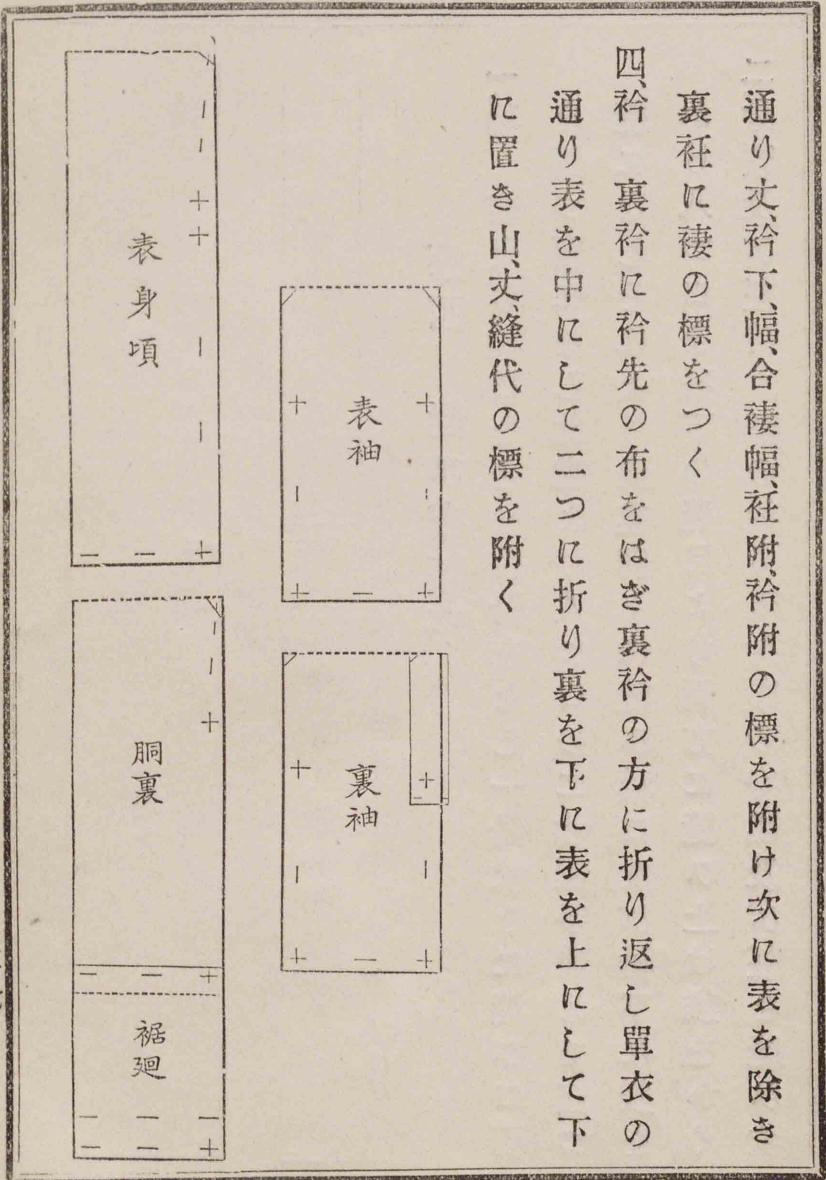 通り丈、衿下、幅、合褄幅、衽附、衿附の標を附け次に表を除き
裏衽に褄の標をつく
四、衿　裏衿に衿先の布をはぎ裏衿の方に折り返し單衣の
通り表を中にして二つに折り裏を下に表を上にして下
に置き山、丈、縫代の標を附く
表袖
裏袖
表身頃
胴裏
裾廻